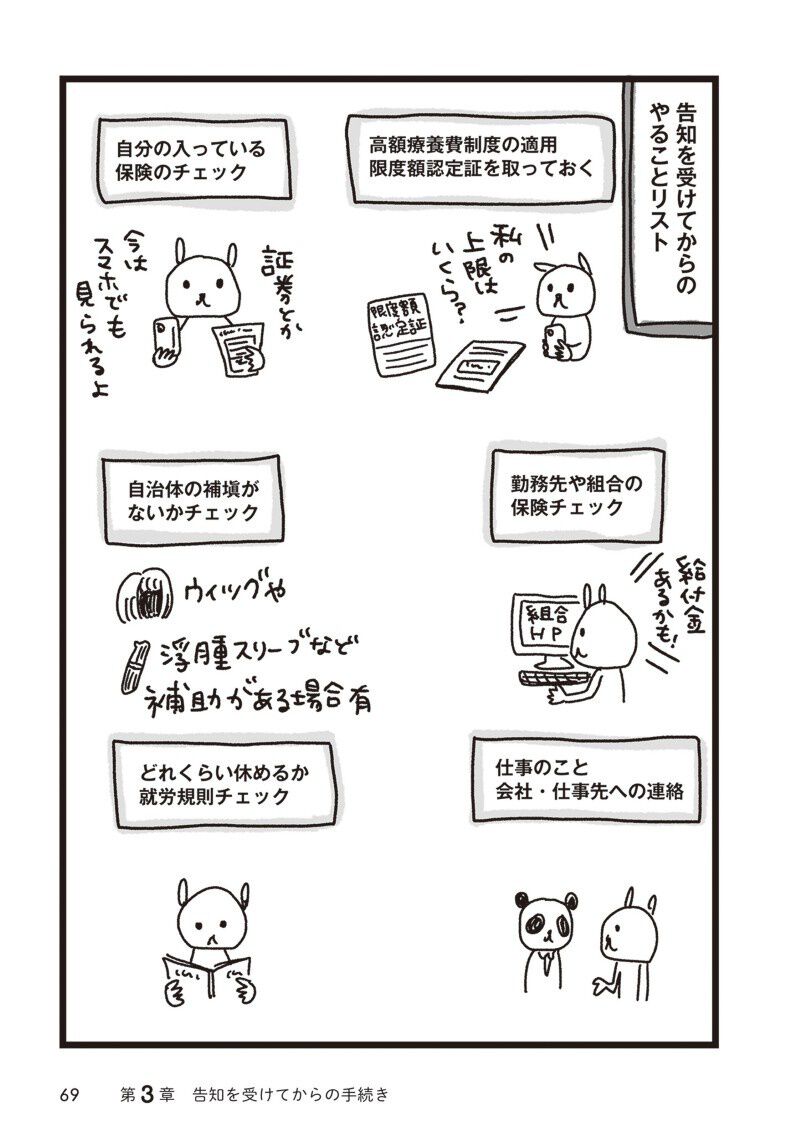 告知を受けてからの
やることリスト
高額療養費制度の適用
限度額認定証を取っておく
私の
上限は
いくら？
限度額
認定証
自分の入っている
保険のチェック
証券とか
今は
スマホでも
見られるよ
勤務先や組合の
保険チェック
給付金
あるかも！
組合
HP
自治体の補塡が
ないかチェック
ウィッグや
浮腫スリーブなど
補助がある場合有
仕事のこと
会社・仕事先への連絡
どれくらい休めるか
就労規則チェック
69　第3章　告知を受けてからの手続き